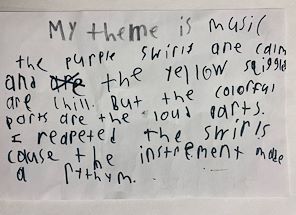 My theme is music
the purple swirls are calm
and are the yellow sqiggles
are chill. But the colorful
parts are the loud parts.
I reapeted the swirls
cause the instrement made
a rythym.